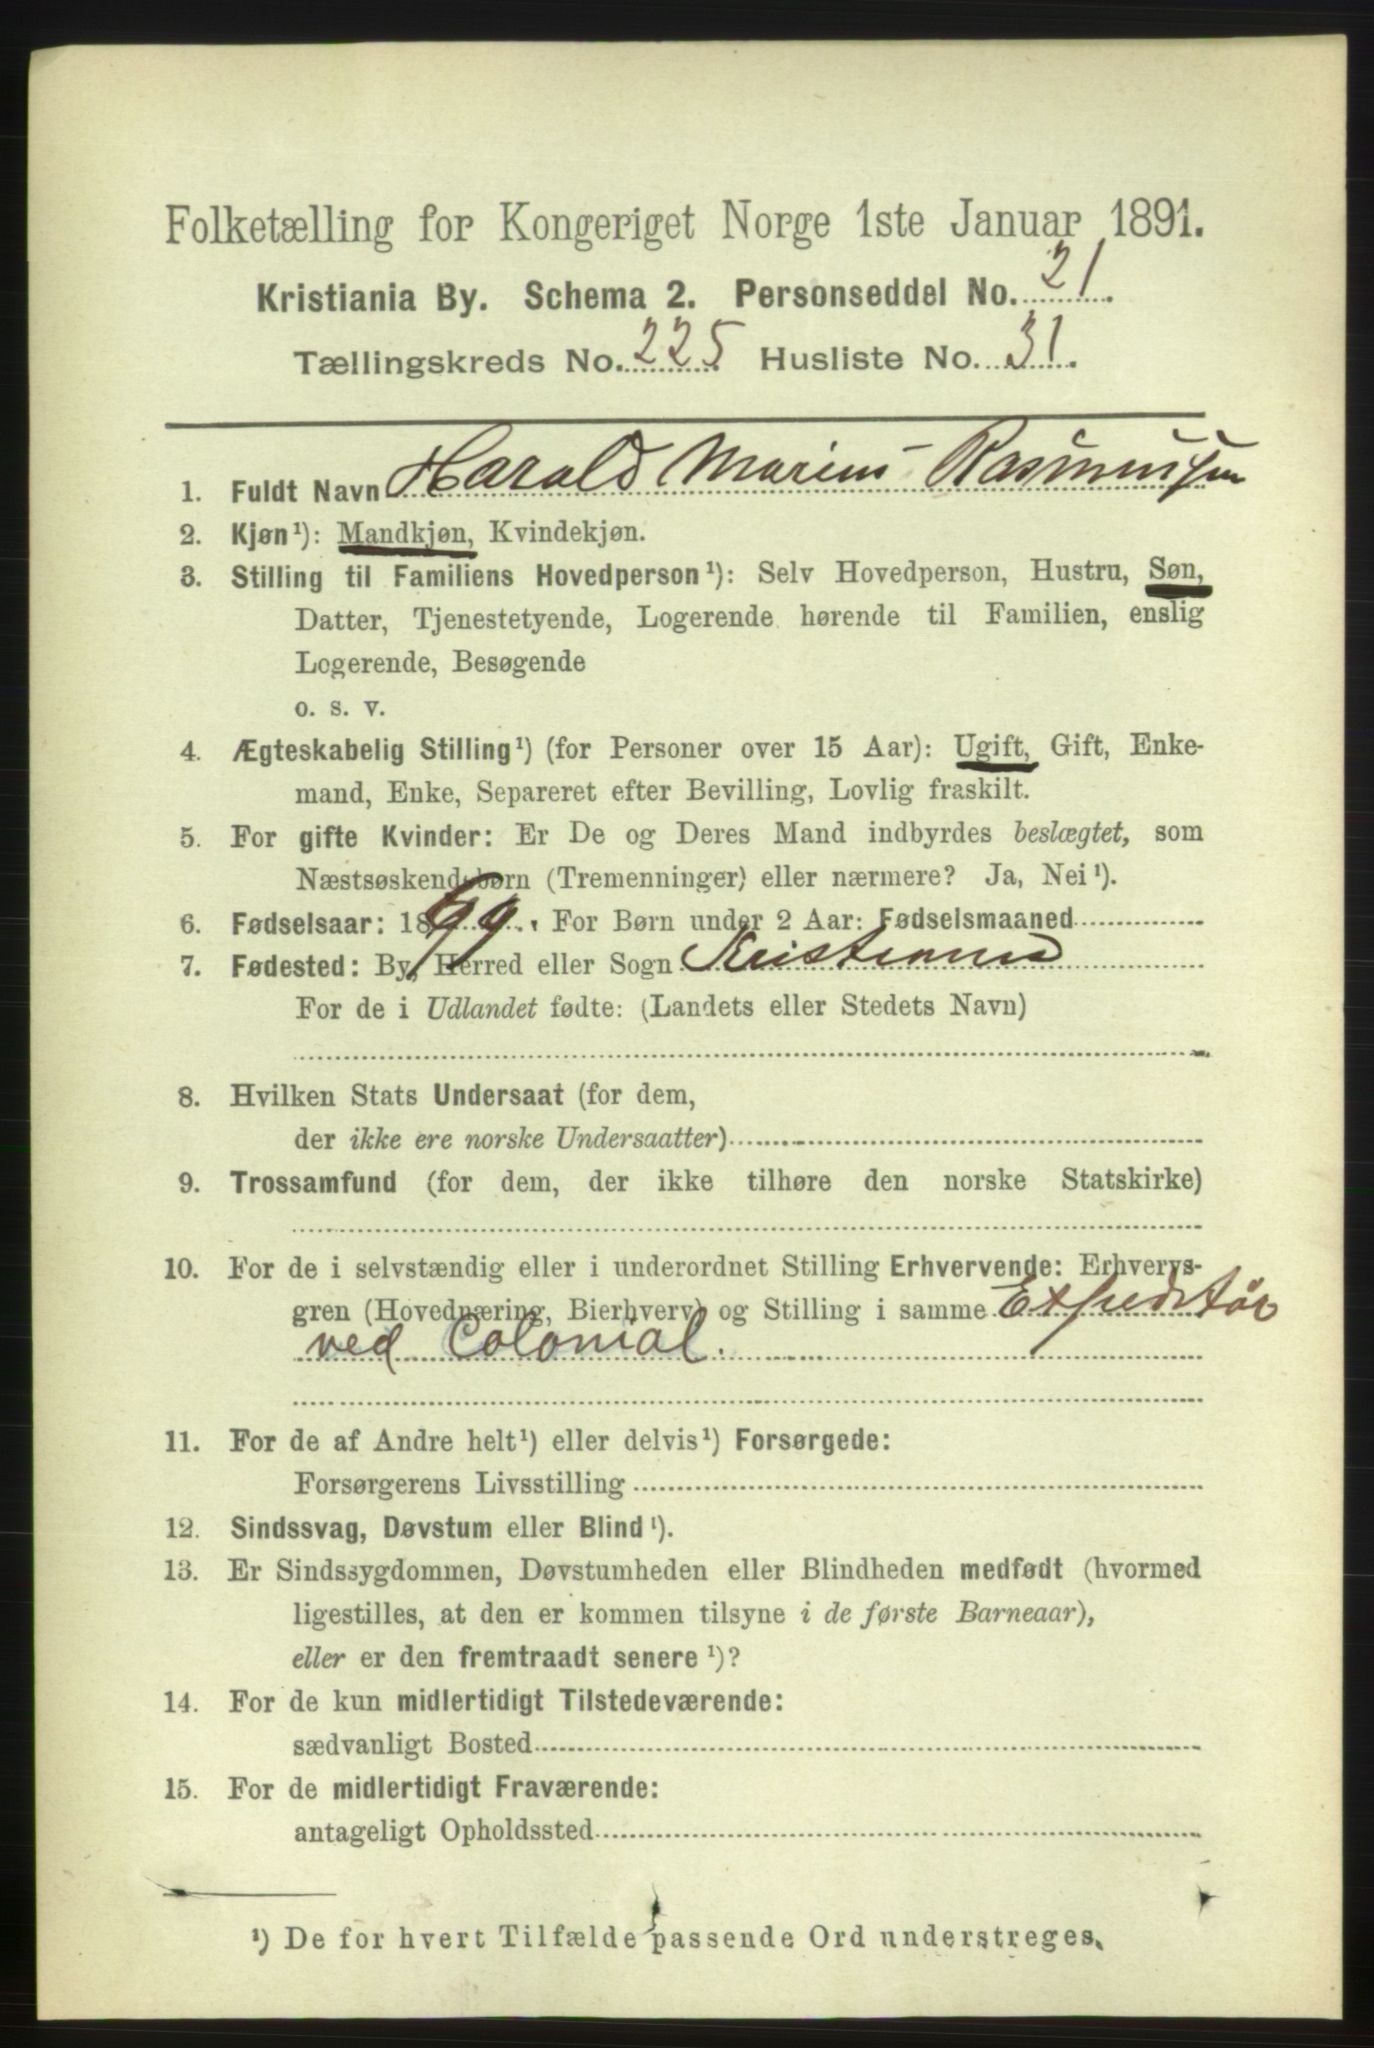 Folketælling for Kongeriget Norge 1ste Januar 1891.
Kristiania By. Schema 2. Personseddel No. 21.
Tællingskreds No. 225 Husliste No. 31.
1. Fuldt Navn Harald Marius Rasmussen
2. Kjøn¹): Mandkjøn, Kvindekjøn.
3. Stilling til Familiens Hovedperson¹): Selv Hovedperson, Hustru, Søn,
Datter, Tjenestetyende, Logerende hørende til Familien, enslig
Logerende, Besøgende
o. s. v.
4. Ægteskabelig Stilling¹) (for Personer over 15 Aar): Ugift, Gift, Enke-
mand, Enke, Separeret efter Bevilling, Lovlig fraskilt.
5. For gifte Kvinder: Er De og Deres Mand indbyrdes beslægtet, som
Næstsøskendebørn (Tremenninger) eller nærmere? Ja, Nei¹).
6. Fødselsaar: 1869. For Børn under 2 Aar: Fødselsmaaned
7. Fødested: By, Herred eller Sogn Kristiania
For de i Udlandet fødte: (Landets eller Stedets Navn)
8. Hvilken Stats Undersaat (for dem,
der ikke ere norske Undersaatter)
9. Trossamfund (for dem, der ikke tilhøre den norske Statskirke)
10. For de i selvstændig eller i underordnet Stilling Erhvervende: Erhvervs-
gren (Hovednæring, Bierhverv) og Stilling i samme Expeditør
ved Colonial.
11. For de af Andre helt¹) eller delvis¹) Forsørgede:
Forsørgerens Livsstilling
12. Sindssvag, Døvstum eller Blind¹).
13. Er Sindssygdommen, Døvstumheden eller Blindheden medfødt (hvormed
ligestilles, at den er kommen tilsyne i de første Barneaar),
eller er den fremtraadt senere¹)?
14. For de kun midlertidigt Tilstedeværende:
sædvanligt Bosted
15. For de midlertidigt Fraværende:
antageligt Opholdssted
¹) De for hvert Tilfælde passende Ord understreges.